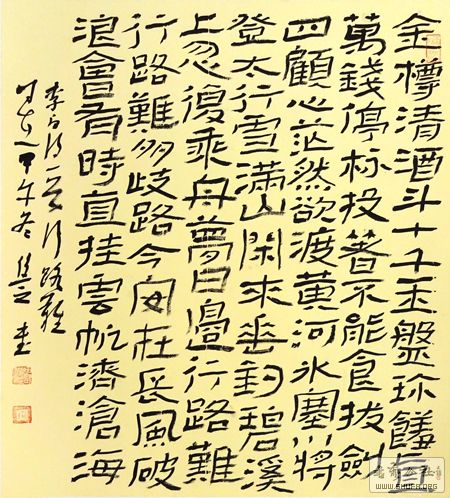 金樽清酒斗十千玉盤珍饈直
萬錢停杯投箸不能食拔劍
四顧心茫然欲渡黃河冰塞川將
登太行雪滿山閑來垂釣碧溪
上忽復乘舟夢日邊行路難
行路難多歧路今安在長風破
浪會有時直挂雲帆濟滄海
李白诗一首行路難
甲午冬書